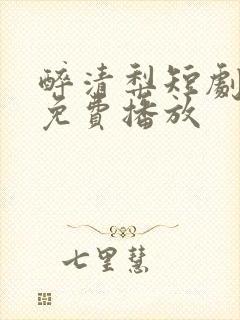 醉清梨短劇
免費播放
七里慧